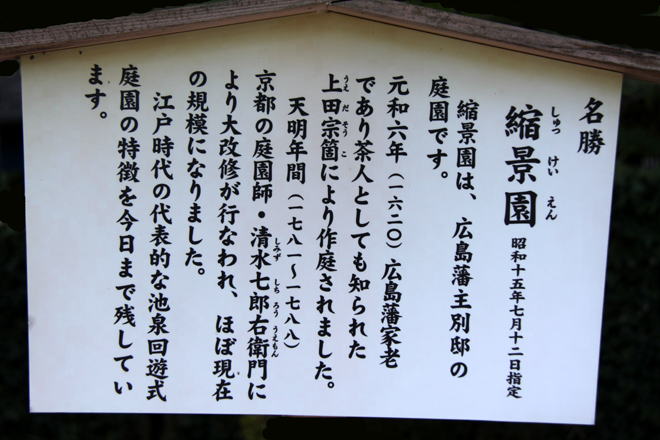 名勝
縮景園 昭和十五年七月十二日指定
しゅっ けい えん
縮景園は、広島藩主別邸の
庭園です。
元和六年(一六二〇)広島藩家老
であり茶人としても知られた
上田宗箇により作庭されました。
うえ だ そう こ
天明年間(一七八一〜一七八八)
京都の庭園師・清水七郎右衛門に
しみず しち ろう うえもん
より大改修が行なわれ、ほぼ現在
の規模になりました。
江戸時代の代表的な池泉回遊式
庭園の特徴を今日まで残してい
ます。